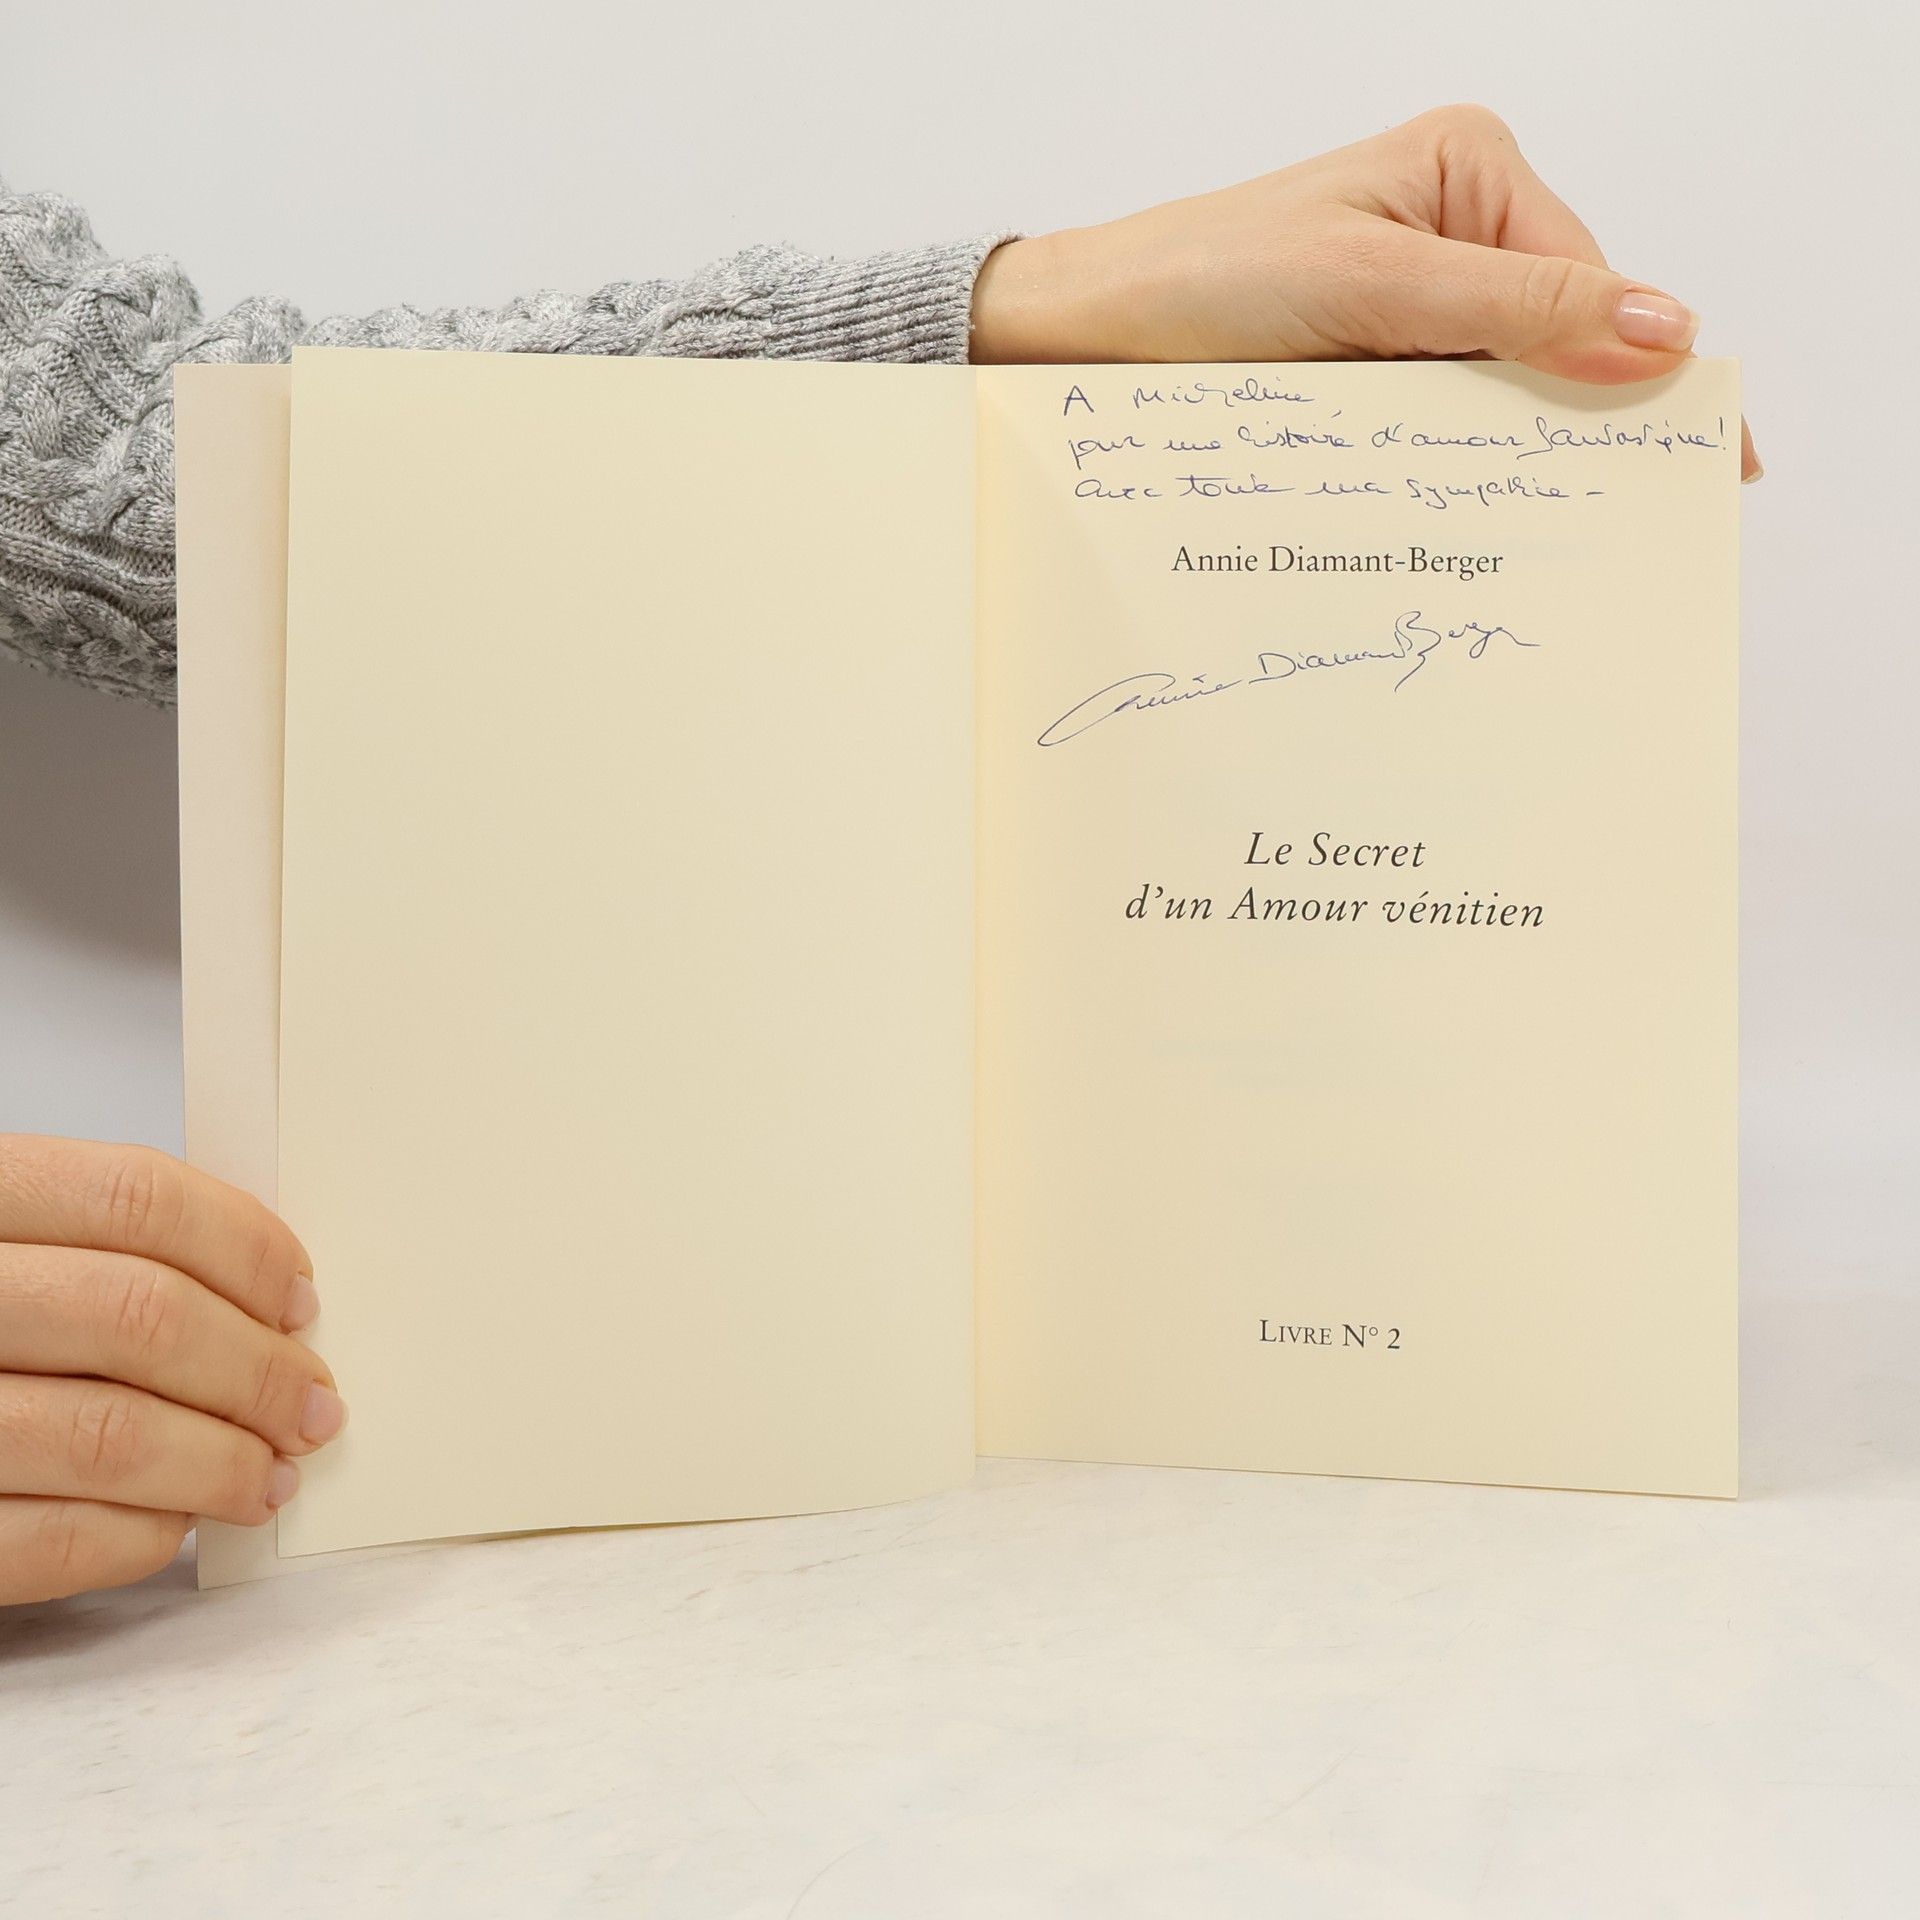 A Micheline,
pour une histoire d'amour fantastique!
avec toute ma sympathie -
Annie Diamant-Berger
Annie Diamant Berger
Le Secret
d'un Amour vénitien
LIVRE N° 2